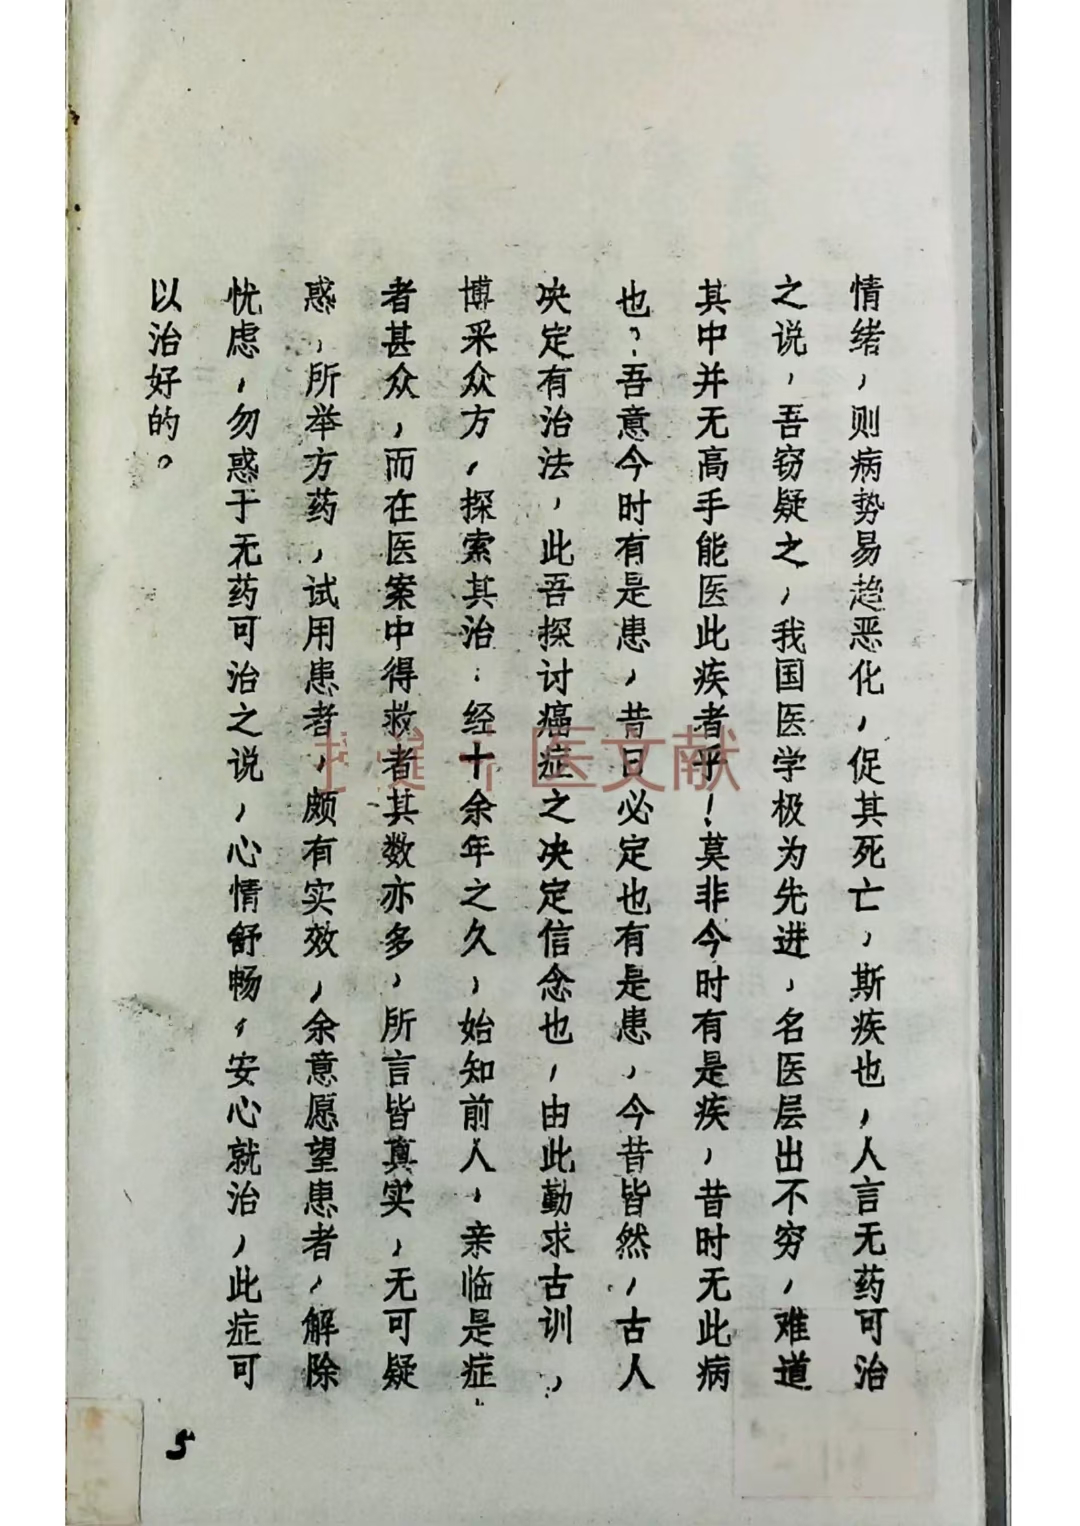 情绪，则病势易趋恶化，促其死亡，斯疾也，人言无药可治
之说，吾窃疑之，我国医学极为先进，名医层出不穷，难道
其中并无高手能医此疾者乎！莫非今时有是疾，昔时无此病
也？吾意今时有是患，昔日必定也有是患，今昔皆然，古人
决定有治法，此吾探讨癌症之决定信念也，由此勤求古训，
博采众方，探索其治：经十余年之久，始知前人，亲临是症
者甚众，而在医案中得救者其数亦多，所言皆真实，无可疑
惑，所举方药，试用患者，颇有实效，余意愿望患者，解除
忧虑，勿惑于无药可治之说，心情舒畅，安心就治，此症可
以治好的。
5
医文献